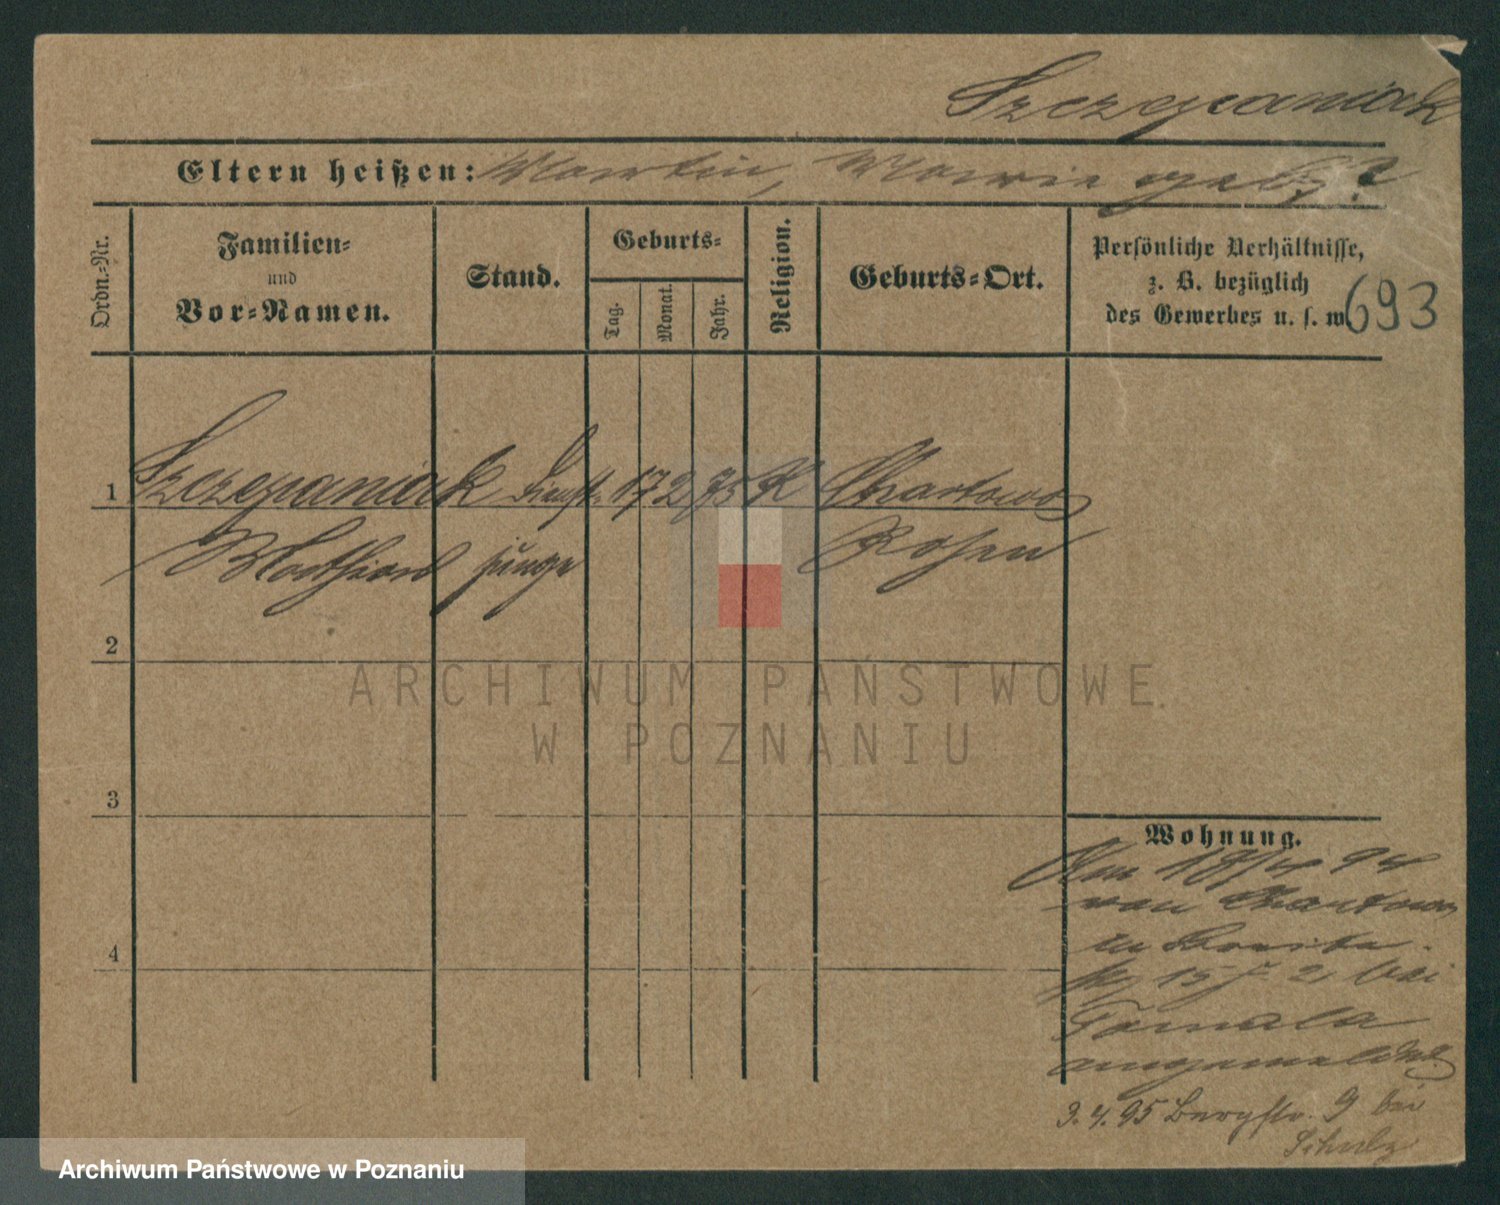 Szczepaniak
Eltern heißen: Martin, Marie geb. ?
Ordn.-Nr.
Familien-
und
Vor-Namen.
Stand.
Geburts-
Tag.
Monat.
Jahr.
Religion.
Geburts-Ort.
Persönliche Verhältnisse,
z. B. bezüglich
des Gewerbes u. s. w.
693
1 Szczepaniak Dienst- 17 2 75 K Chartowo
Mathias junge Posen
2
ARCHIWUM PAŃSTWOWE
W POZNANIU
3
Wohnung.
Am 18/4 94
von Chartowo
4
15 2 bei
Tomala
angemeldet
3.4.95 Bergstr. 9 bei
Schulz
Archiwum Państwowe w Poznaniu